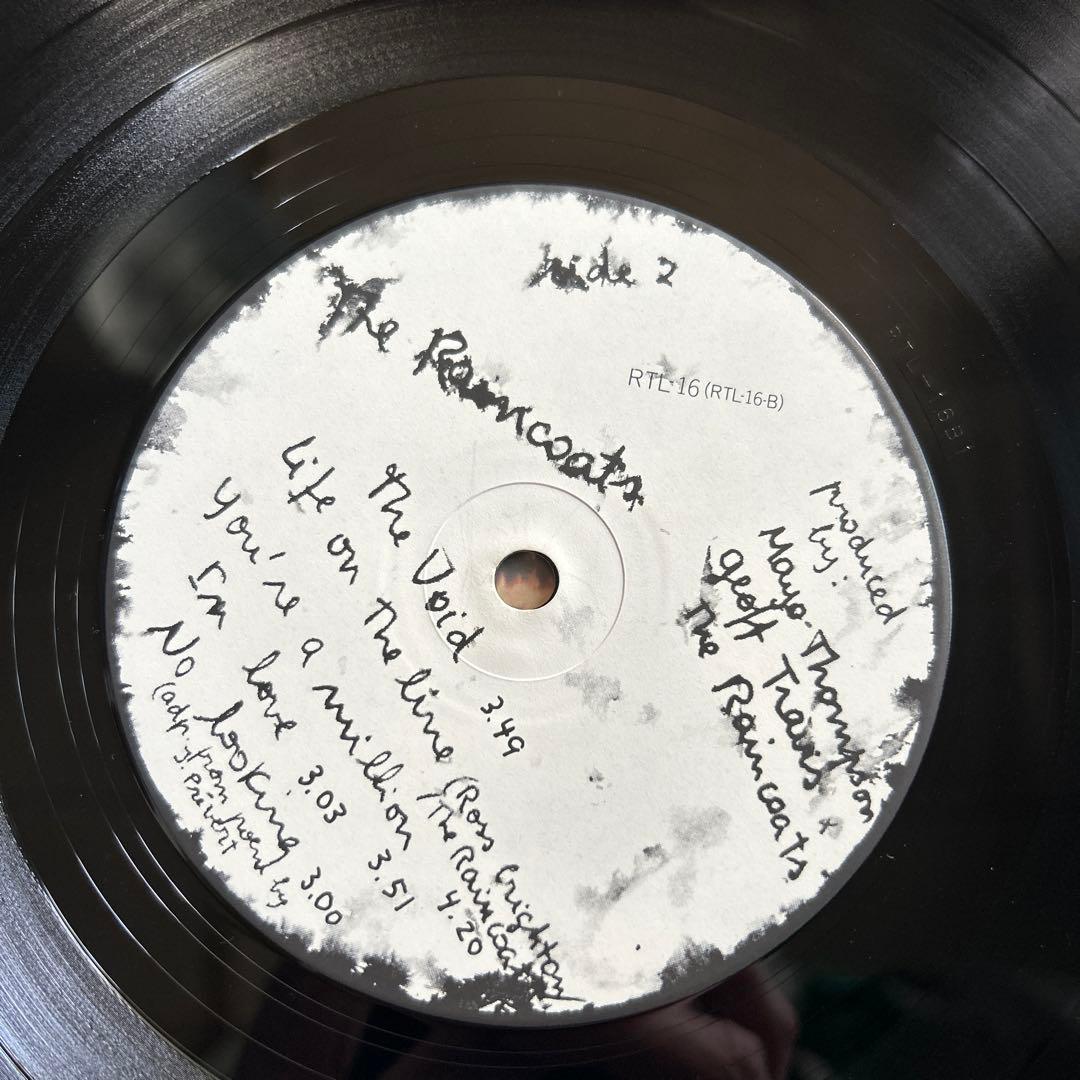 side 2
The Raincoats
RTL-16 (RTL-16-B)
the Void 3.49
Life on the line (Ross Crighton/
The Raincoats) 4.20
You're a million 3.51
In love 3.03
No looking 3.00
(adp. from poem by
J. Prévert
produced
by:
Mayo-Thompson
geoff Travis &
The Raincoats
RTL-16B1